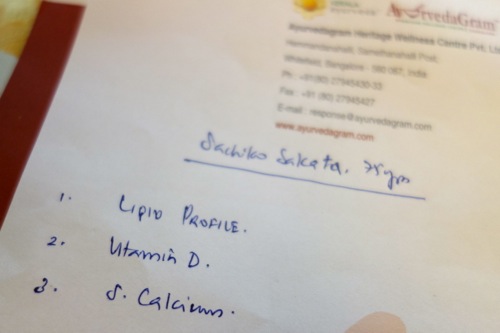 AyurvedaGram
Ayurvedagram Heritage Wellness Centre Pvt. Ltd
Hemmandanahalli, Samethanahalli Post,
Whitefield, Bangalore - 560 067, India
Ph : +91(80) 27945430-33
Fax : +91 (80) 27945427
E-mail : response@ayurvedagram.com
www.ayurvedagram.com
Sachiko Sakata. 75 yrs
1. LIPID PROFILE.
2. Vitamin D.
3. S. Calcium.